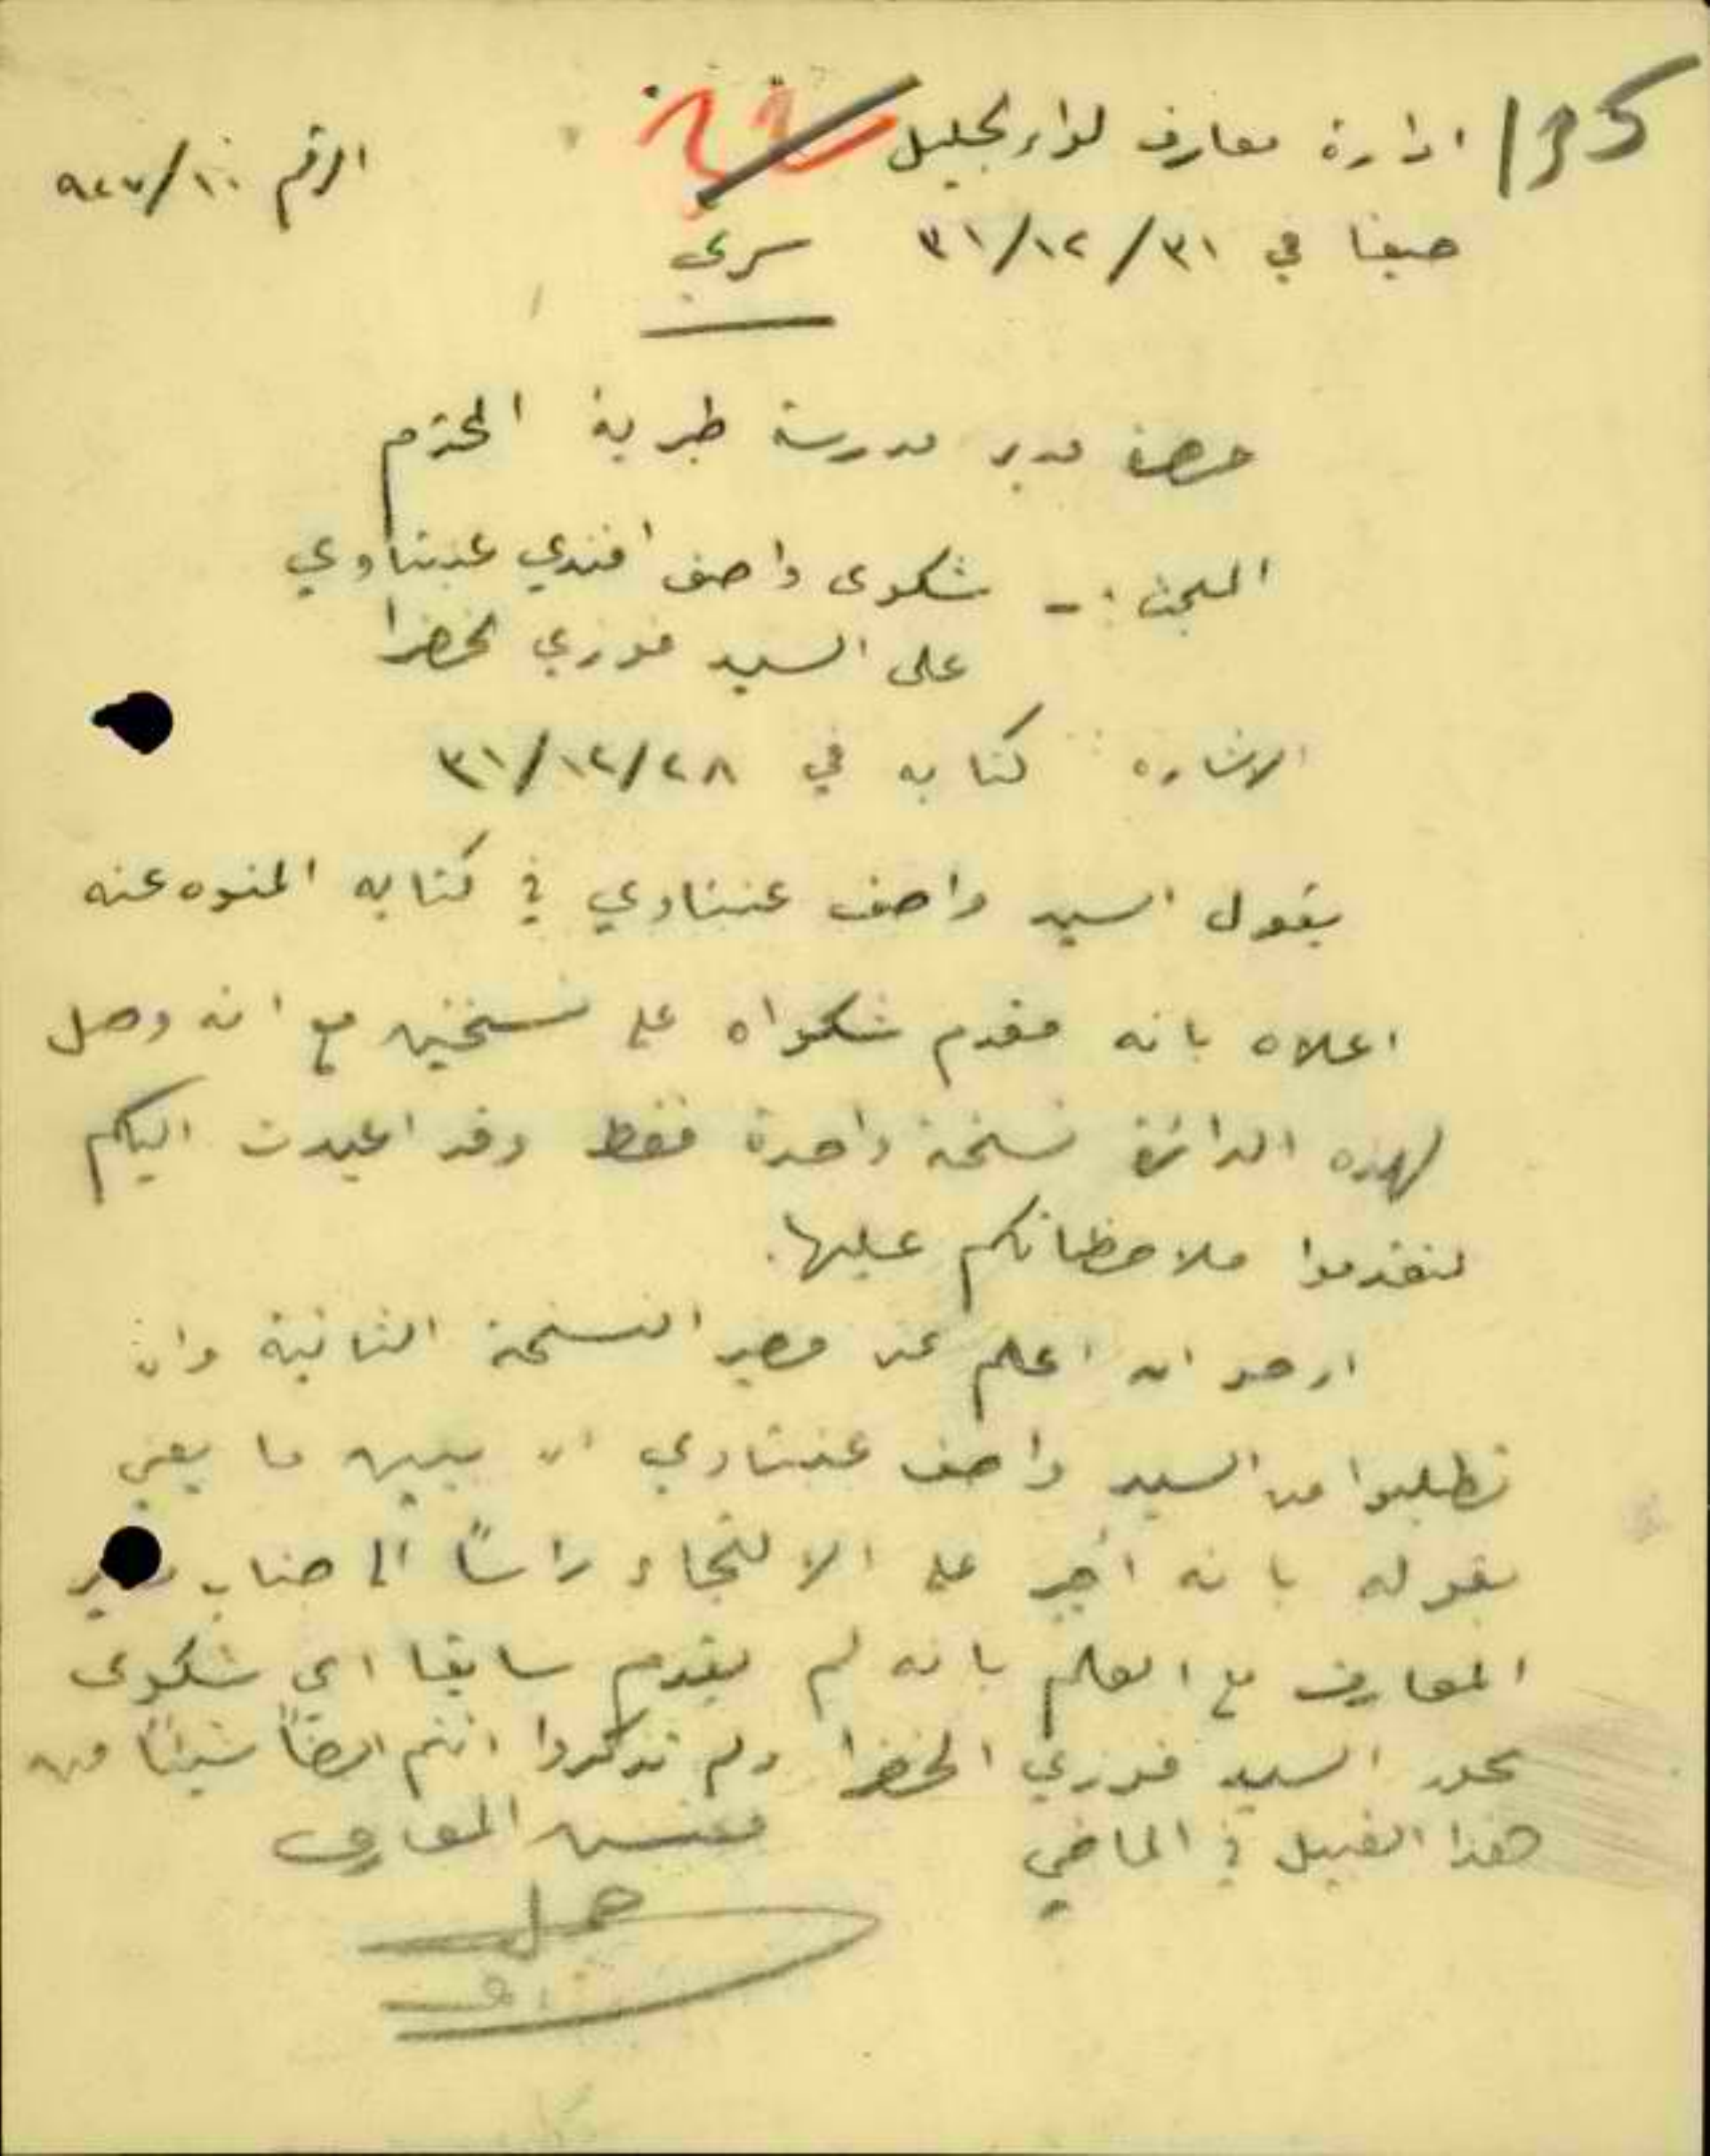 135
ادارة معارف لواء الجليل
الرقم ٩٤٧/١٠
حيفا في ٣١/١٢/٣١ سري
حضرة مدير مدرسة طبرية المحترم
المبحث :- شكوى واصف افندي عنبتاوي
على السيد فوزي الخضرا
الاشارة : كتابه في ٣١/١٢/٢٨
يقول السيد واصف عنبتاوي في كتابه المنوه عنه
اعلاه بانه مقدم شكواه على نسختين مع انه وصل
لهذه الدائرة نسخة واحدة فقط وقد اعيدت اليكم
لتقدموا ملاحظاتكم عليها.
ارجو ان اعلم عن مصير النسخة الثانية وان
تطلبوا من السيد واصف عنبتاوي ان يبين ما يعني
بقوله بانه اجبر على الالتجاء رأساً الى جناب مدير
المعارف مع العلم بانه لم يقدم سابقا اي شكوى
بحق السيد فوزي الخضرا ولم تذكروا انتم ايضاً شيئاً من
هذا القبيل في الماضي
مفتش المعارف